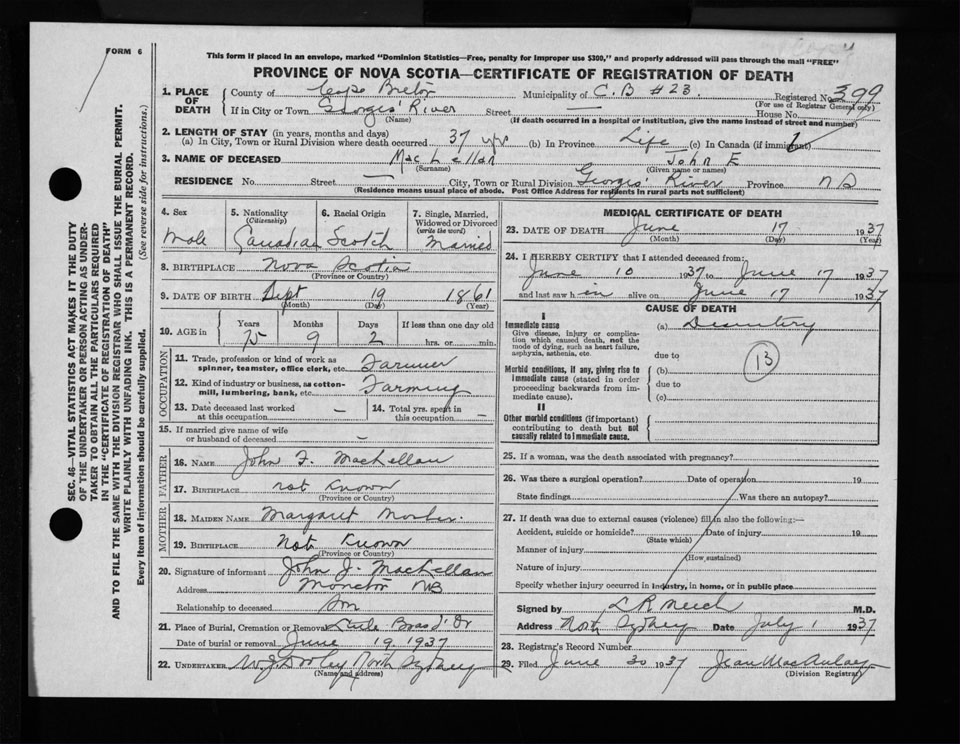 FORM 6
This form if placed in an envelope, marked "Dominion Statistics—Free, penalty for improper use $300," and properly addressed will pass through the mail "FREE"
PROVINCE OF NOVA SCOTIA—CERTIFICATE OF REGISTRATION OF DEATH
SEC. 46—VITAL STATISTICS ACT MAKES IT THE DUTY
OF THE UNDERTAKER OR PERSON ACTING AS UNDER-
TAKER TO OBTAIN ALL THE PARTICULARS REQUIRED
IN THE "CERTIFICATE OF REGISTRATION OF DEATH"
AND TO FILE THE SAME WITH THE DIVISION REGISTRAR WHO SHALL ISSUE THE BURIAL PERMIT.
WRITE PLAINLY WITH UNFADING INK. THIS IS A PERMANENT RECORD.
Every item of information should be carefully supplied. (See reverse side for instructions.)
1. PLACE OF DEATH County of Cape Breton Municipality of C.B #23. Registered No. 399
(For use of Registrar General only)
If in City or Town Georges' River Street — House No.
(Name) (If death occurred in a hospital or institution, give the name instead of street and number)
2. LENGTH OF STAY (in years, months and days)
(a) In City, Town or Rural Division where death occurred 37 yrs (b) In Province Life (c) In Canada (if immigrant)
3. NAME OF DECEASED MacLellan John E
(Surname) (Given name or names)
RESIDENCE No. Street — City, Town or Rural Division Georges' River Province NS
(Residence means usual place of abode. Post Office Address for residents in rural parts not sufficient)
4. Sex Male
5. Nationality (Citizenship) Canadian
6. Racial Origin Scotch
7. Single, Married, Widowed or Divorced (write the word) Married
8. BIRTHPLACE Nova Scotia
(Province or Country)
9. DATE OF BIRTH Sept 19 1861
(Month) (Day) (Year)
10. AGE in Years Months Days If less than one day old
9 2 hrs. or min.
OCCUPATION
11. Trade, profession or kind of work as spinner, teamster, office clerk, etc. Farmer
12. Kind of industry or business, as cotton-mill, lumbering, bank, etc. Farming
13. Date deceased last worked at this occupation —
14. Total yrs. spent in this occupation —
15. If married give name of wife or husband of deceased —
FATHER
16. NAME John F. MacLellan
17. BIRTHPLACE not Known
(Province or Country)
MOTHER
18. MAIDEN NAME Margaret
19. BIRTHPLACE Not Known
(Province or Country)
20. Signature of informant John J. MacLellan
Address Moncton NB
Relationship to deceased Son
21. Place of Burial, Cremation or Removal Little Bras d'Or
Date of burial or removal June 19 1937
22. UNDERTAKER W.J. Dooley North Sydney
(Name and address)
MEDICAL CERTIFICATE OF DEATH
23. DATE OF DEATH June 17 1937
(Month) (Day) (Year)
24. I HEREBY CERTIFY that I attended deceased from:
June 10 1937 to June 17 1937
and last saw him alive on June 17 1937
CAUSE OF DEATH
I
Immediate cause
Give disease, injury or complication which caused death, not the mode of dying, such as heart failure, asphyxia, asthenia, etc.
(a) Dysentery
due to
13
Morbid conditions, if any, giving rise to immediate cause (stated in order proceeding backwards from immediate cause).
(b)
due to
(c)
II
Other morbid conditions (if important) contributing to death but not causally related to immediate cause.
25. If a woman, was the death associated with pregnancy?
26. Was there a surgical operation? Date of operation 19
State findings Was there an autopsy?
27. If death was due to external causes (violence) fill in also the following:—
Accident, suicide or homicide? Date of injury 19
(State which)
Manner of injury
(How sustained)
Nature of injury
Specify whether injury occurred in industry, in home, or in public place
Signed by L R Meech M.D.
Address North Sydney Date July 1 1937
28. Registrar's Record Number
29. Filed June 30 1937 Jean MacAulay
(Division Registrar)